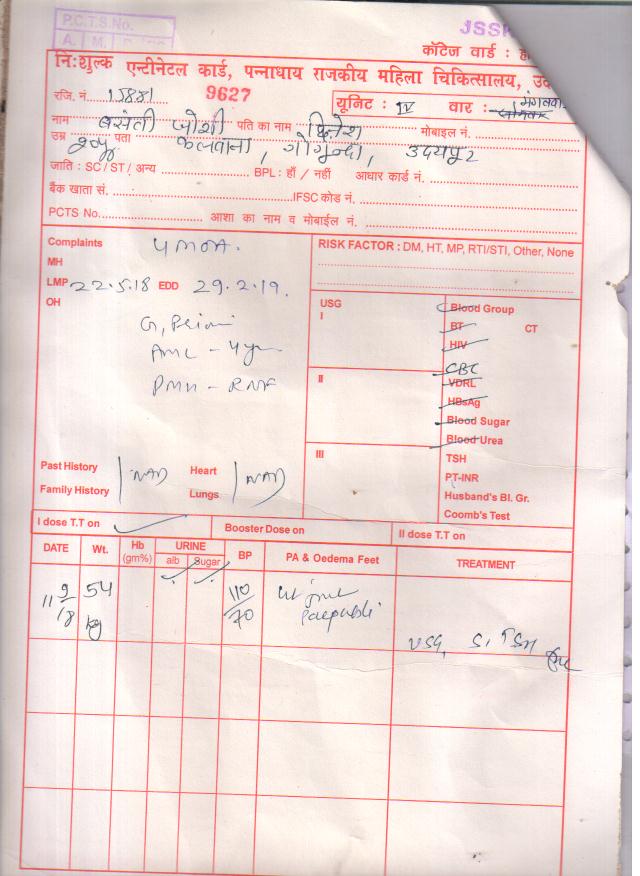 P.C.T.S.No.
A. M.
JSSK
कॉटेज वार्ड :
निःशुल्क एन्टीनेटल कार्ड, पन्नाधाय राजकीय महिला चिकित्सालय,
रजि. नं. 15881 9627 यूनिट : IV वार : सोमवार मंगलवा
नाम बसंती जोशी पति का नाम दिनेश मोबाइल नं.
उम्र पता कलवाना, गोगुन्दा, उदयपुर
जाति : SC / ST / अन्य BPL : हाँ / नहीं आधार कार्ड नं.
बैंक खाता सं. IFSC कोड नं.
PCTS No. आशा का नाम व मोबाईल नं.
Complaints 4 MOA. RISK FACTOR : DM, HT, MP, RTI/STI, Other, None
MH
LMP 22.5.18 EDD 29.2.19.
OH
USG
I
II
III
Blood Group
BT CT
HIV
CBC
VDRL
HBsAg
Blood Sugar
Blood Urea
TSH
PT-INR
Husband's Bl. Gr.
Coomb's Test
G, Primi
AML - 4 yr
PMH - RMF
Past History NAD Heart NAD
Family History Lungs
I dose T.T on Booster Dose on II dose T.T on
DATE Wt. Hb (gm%) URINE alb Sugar BP PA & Oedema Feet TREATMENT
11/9/18 54 kg 110/70
USG, S. TSH